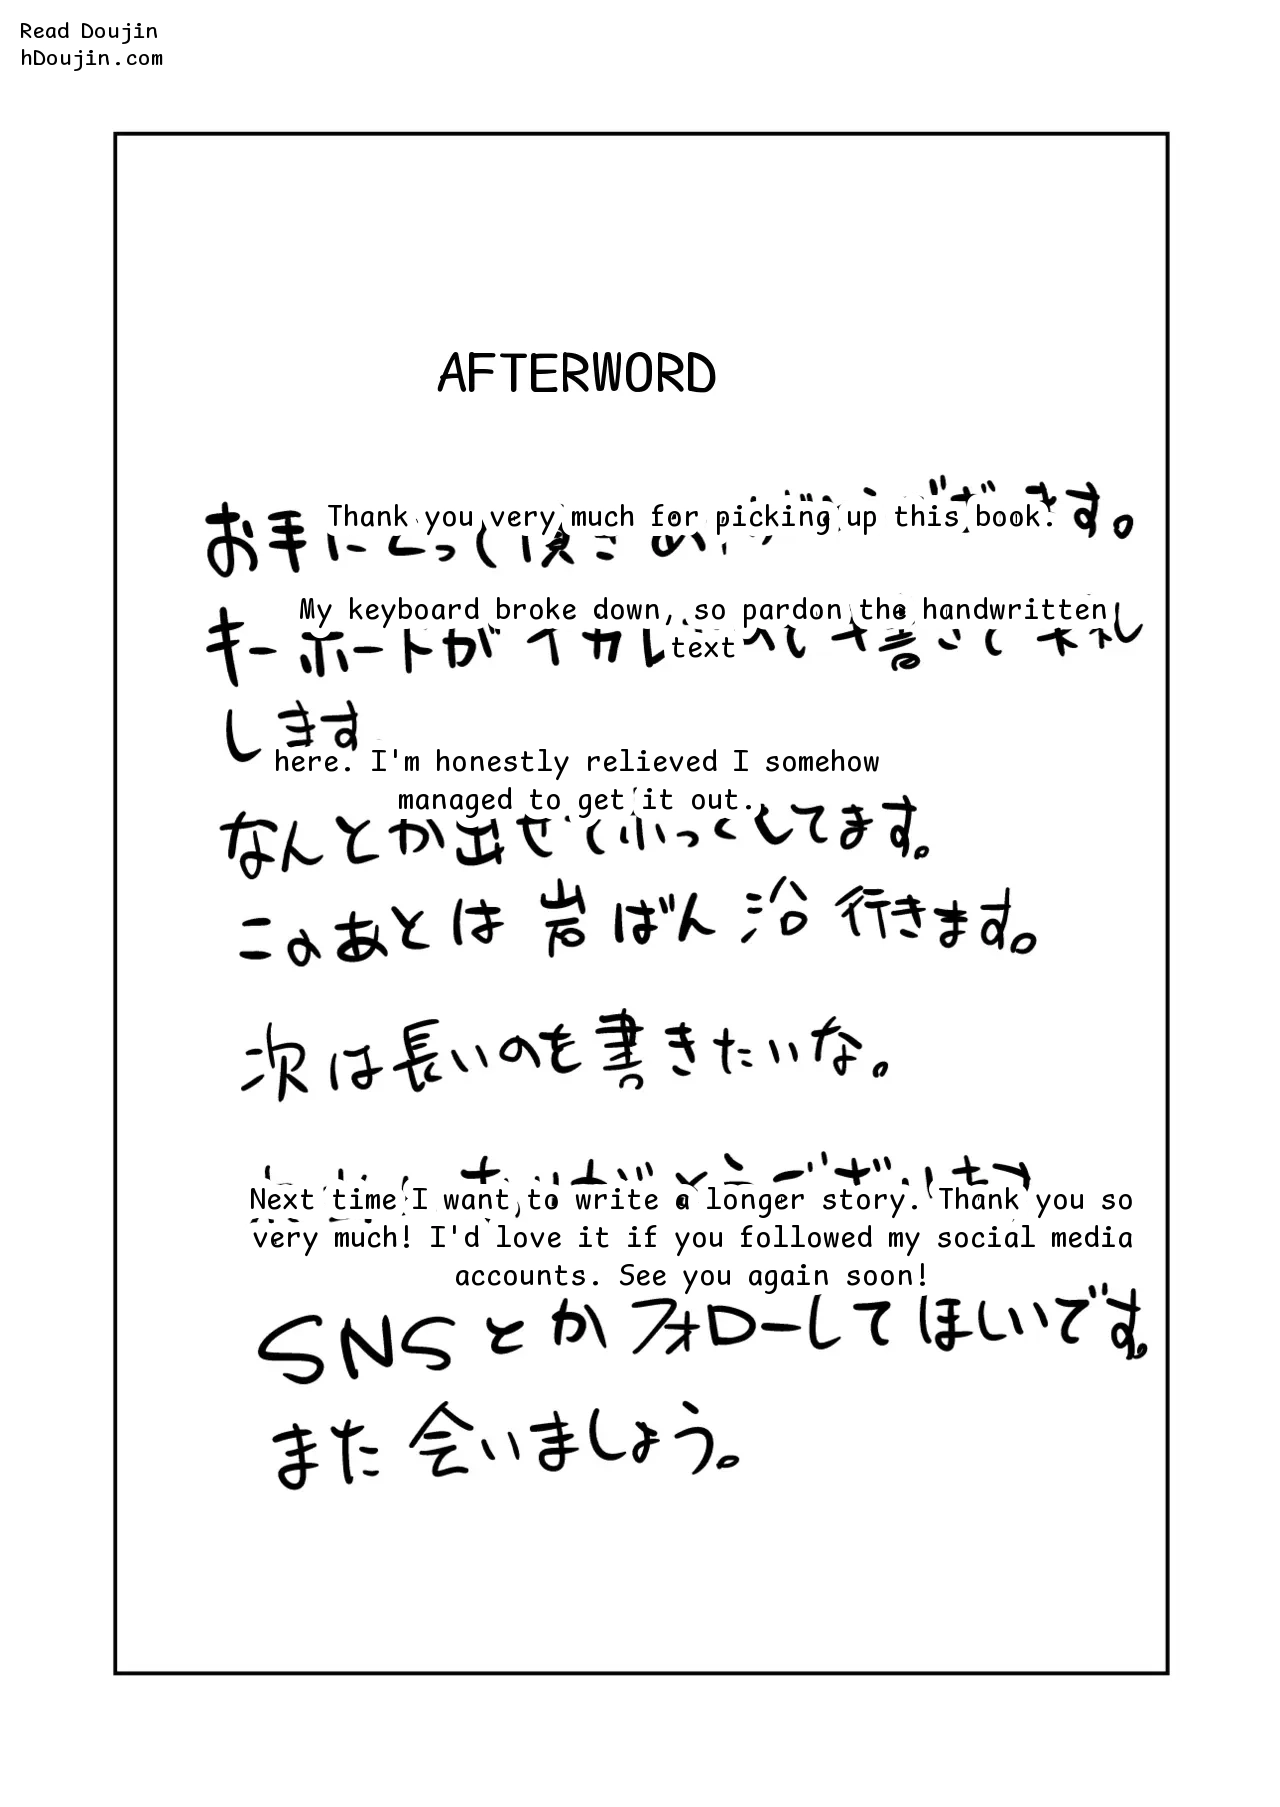 Read Doujin
hDoujin.com
AFTERWORD
Thank you very much for picking up this book.
お手 す。
My keyboard broke down, so pardon the handwritten
text
キーボードがイカレ
します
here. I'm honestly relieved I somehow
managed to get it out.
なんとか出せ してます。
このあとは岩ばん浴行きます。
次は長いのを書きたいな。
Next time I want to write a longer story. Thank you so
very much! I'd love it if you followed my social media
accounts. See you again soon!
SNSとかフォローしてほしいです。
また会いましょう。